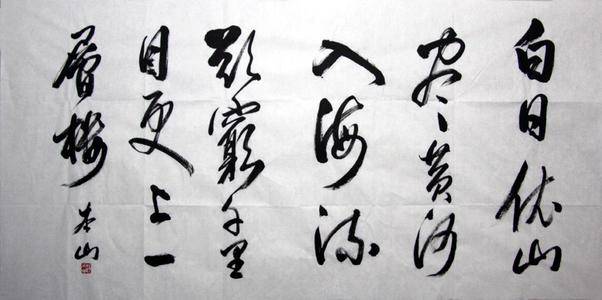 白日依山
尽黄河
入海流
欲窮千里
目更上一
層楼
本山